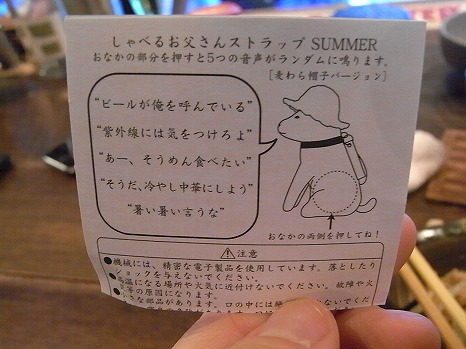 しゃべるお父さんストラップ SUMMER
おなかの部分を押すと5つの音声がランダムに鳴ります。
[麦わら帽子バージョン]
“ビールが俺を呼んでいる”
“紫外線には気をつけろよ”
“あー、そうめん食べたい”
“そうだ、冷やし中華にしよう”
“暑い暑い言うな”
おなかの両側を押してね!
注意
●機械には、精密な電子製品を使用しています。落としたり
ショックを与えないでください。
●高温になる場所や火気に近付けないでください。故障や火
等の原因になります。
●小さな部品があります。口の中には絶 ないでくだ